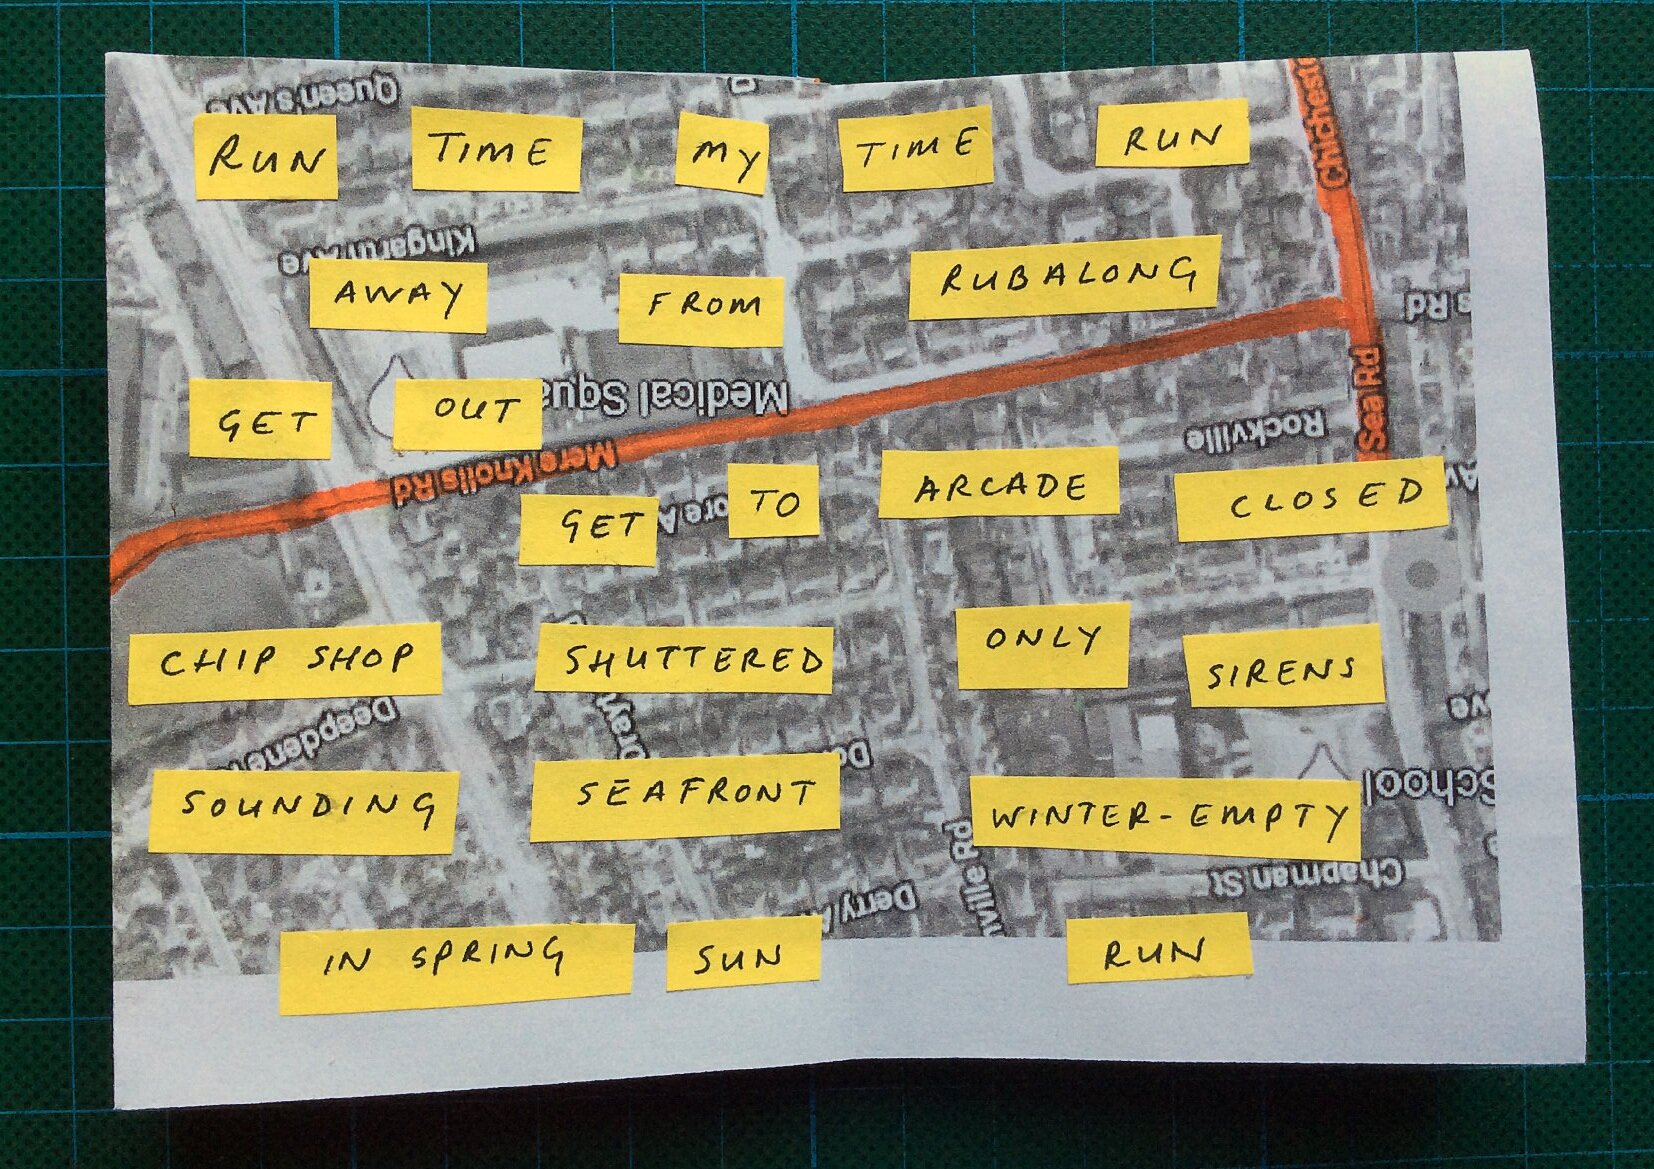 Queen's Ave
RUN TIME MY TIME RUN
Chichest
Kingarth Ave
AWAY FROM RUBALONG
s Rd
GET OUT
Medical Squa
Rockville
Sea Rd
Mere Knolls Rd
GET TO ARCADE CLOSED
ore A
Av
CHIP SHOP SHUTTERED ONLY SIRENS
Deepdene
ve
School
SOUNDING SEAFRONT WINTER-EMPTY
ville Rd
Chapman St
Derry A
IN SPRING SUN RUN